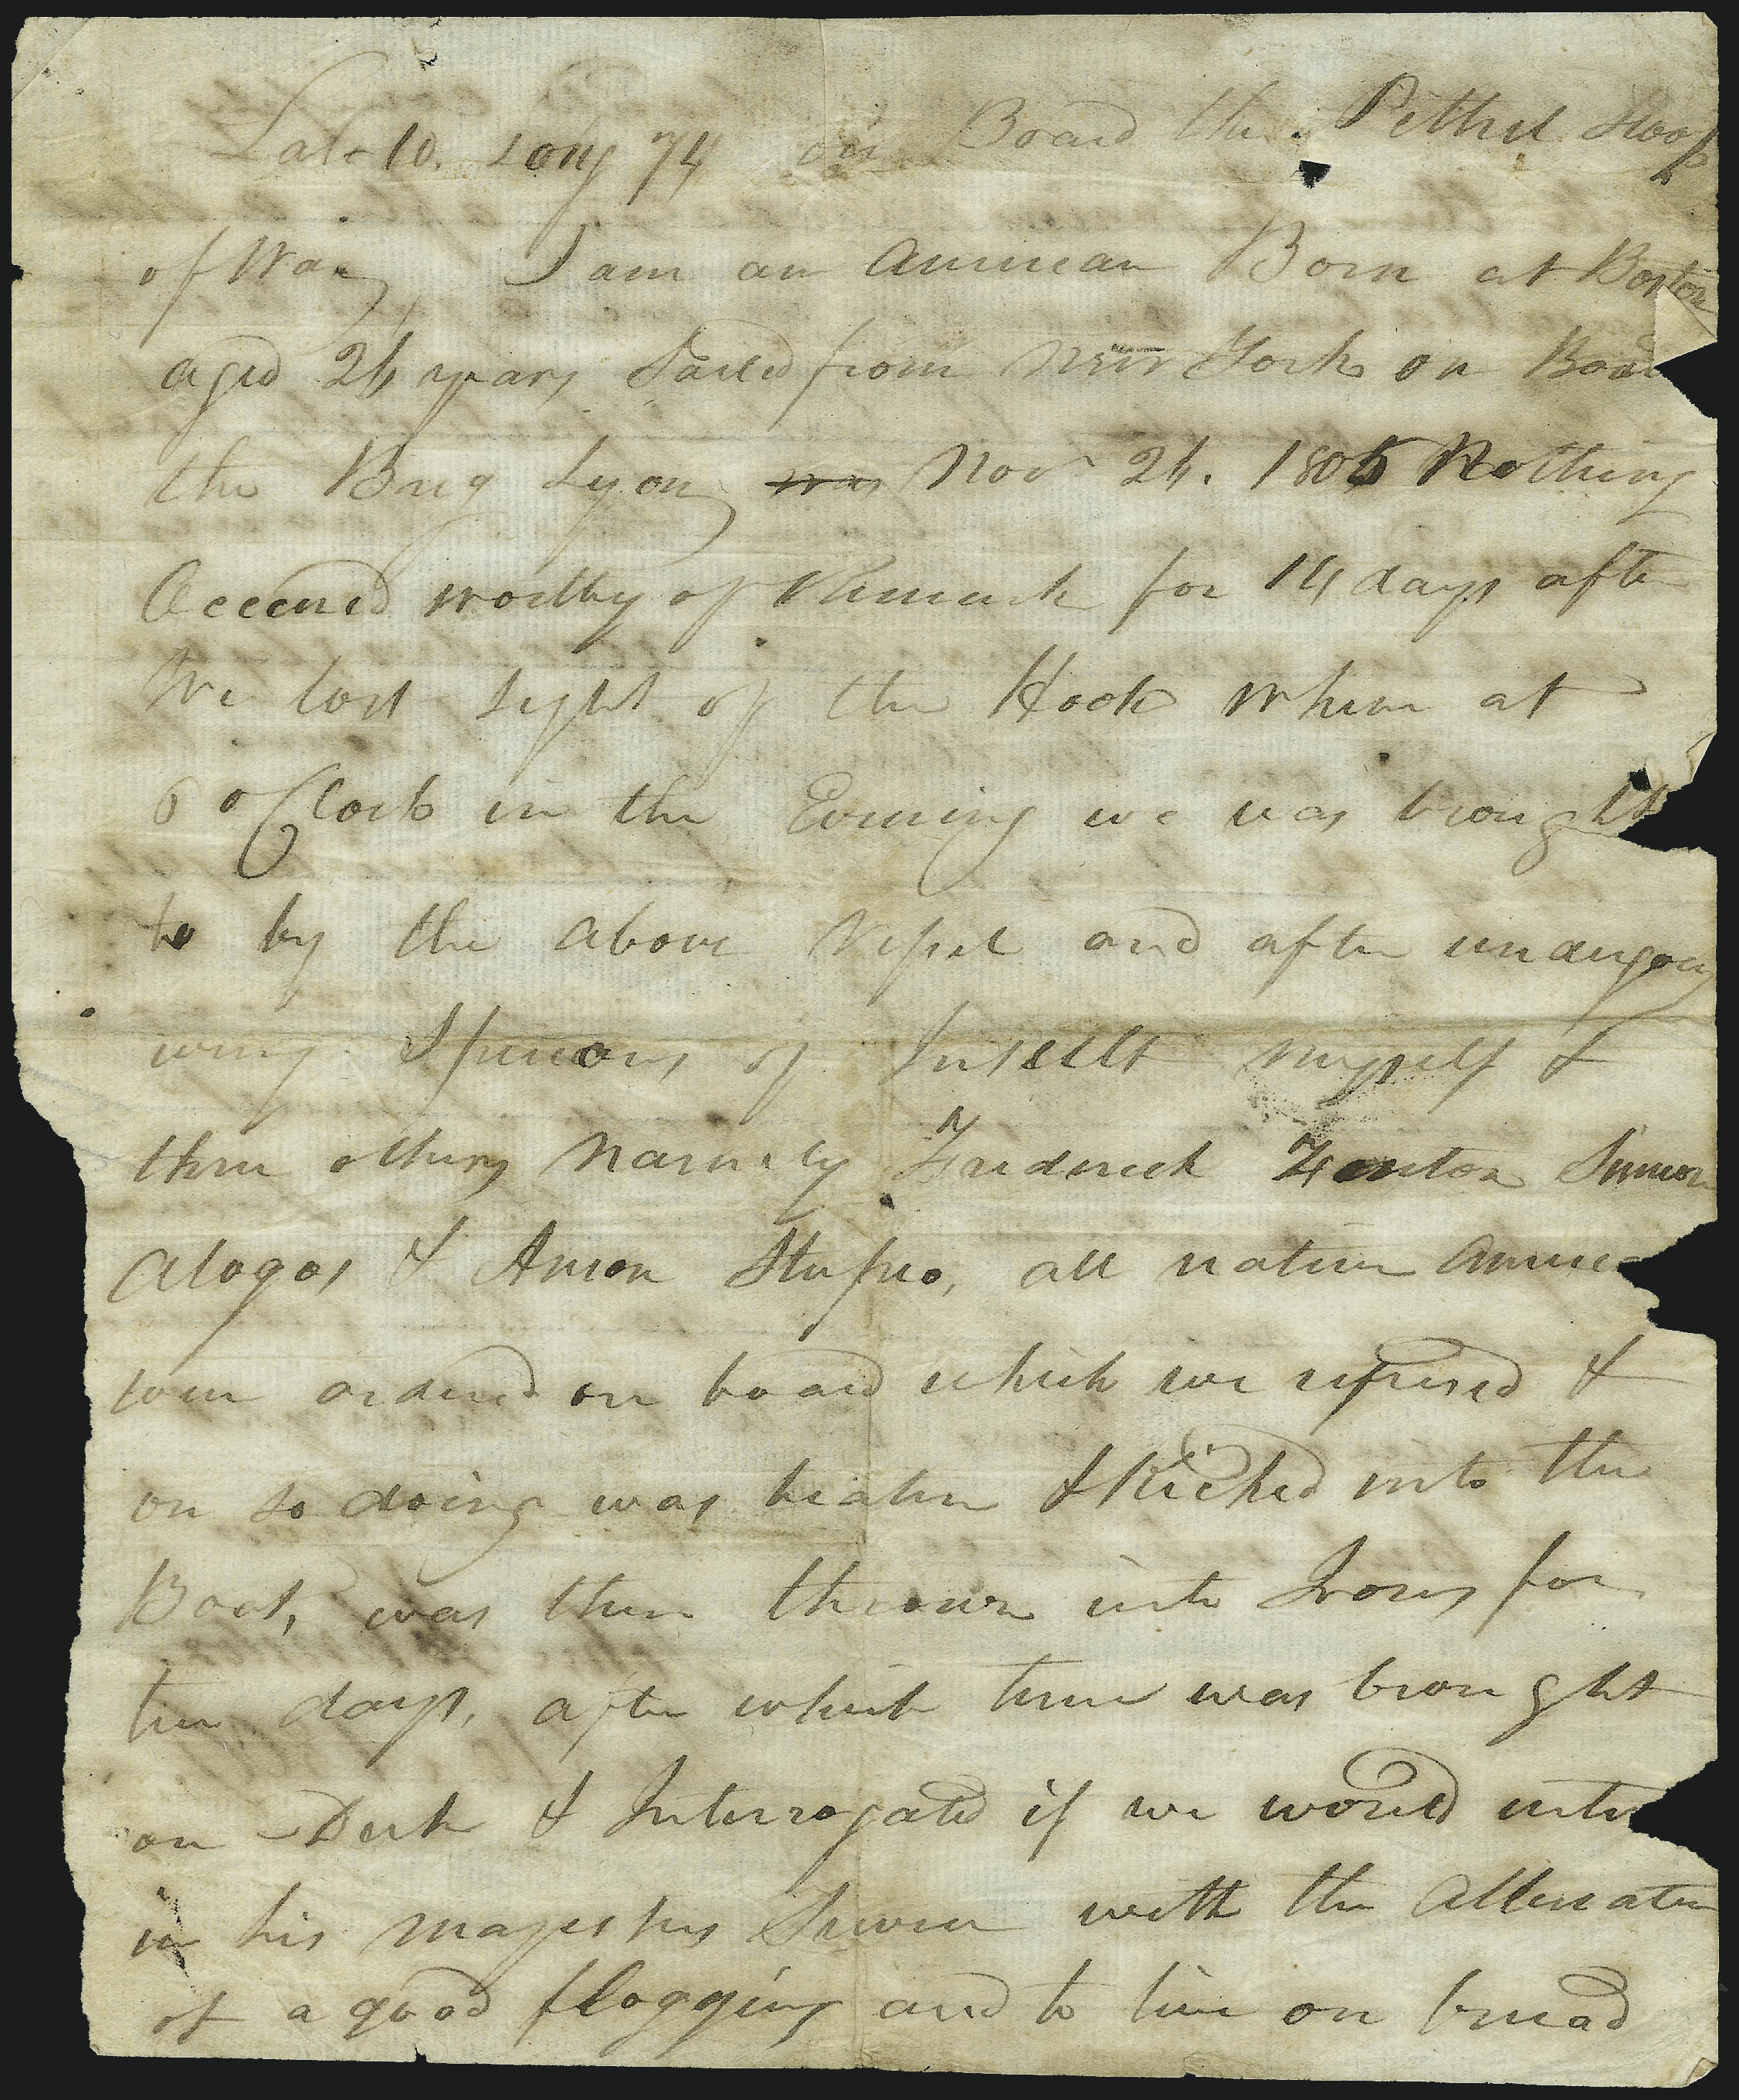 Lat 10. Long 74 on Board the Pettrel Sloop
of War, I am an American Born at Boston
aged 26 years Sailed from New York on Boa
the Brig Lyon, was Nov 26. 1806 Nothing
Occured worthy of Remark for 14 days after
We lost sight of the Hook When at
6 oClock in the Evening we was brought
to by the above Vessel and after undergoing
every Specious of Insult myself &
three others Namely Frederick Fenton Simeon
Alogos & Amon Stafceo, all native Americ
were ordered on board which we refused &
on so doing was beaten & Kicked into the
Boat, was then thrown into Irons for
ten days, after which time was brought
on Deck & Interrogated if we would enter
in his majesties Service with the Alternative
of a good flogging and to live on bread